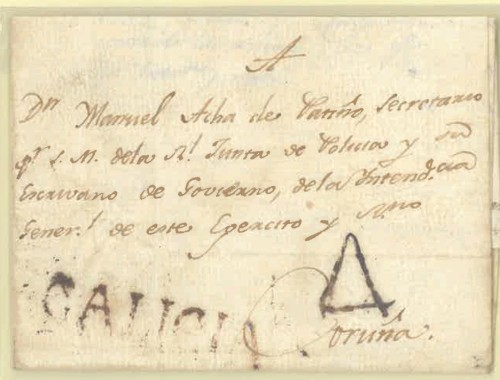 A
Dn Manuel Acha de Patiño, Secretario
pr S. M. de la Rl Junta de Policia y su
Escrivano de Govierno, de la Intend.cia
Gener.l de este Egercito y R.no
GALICI 4
Coruña.